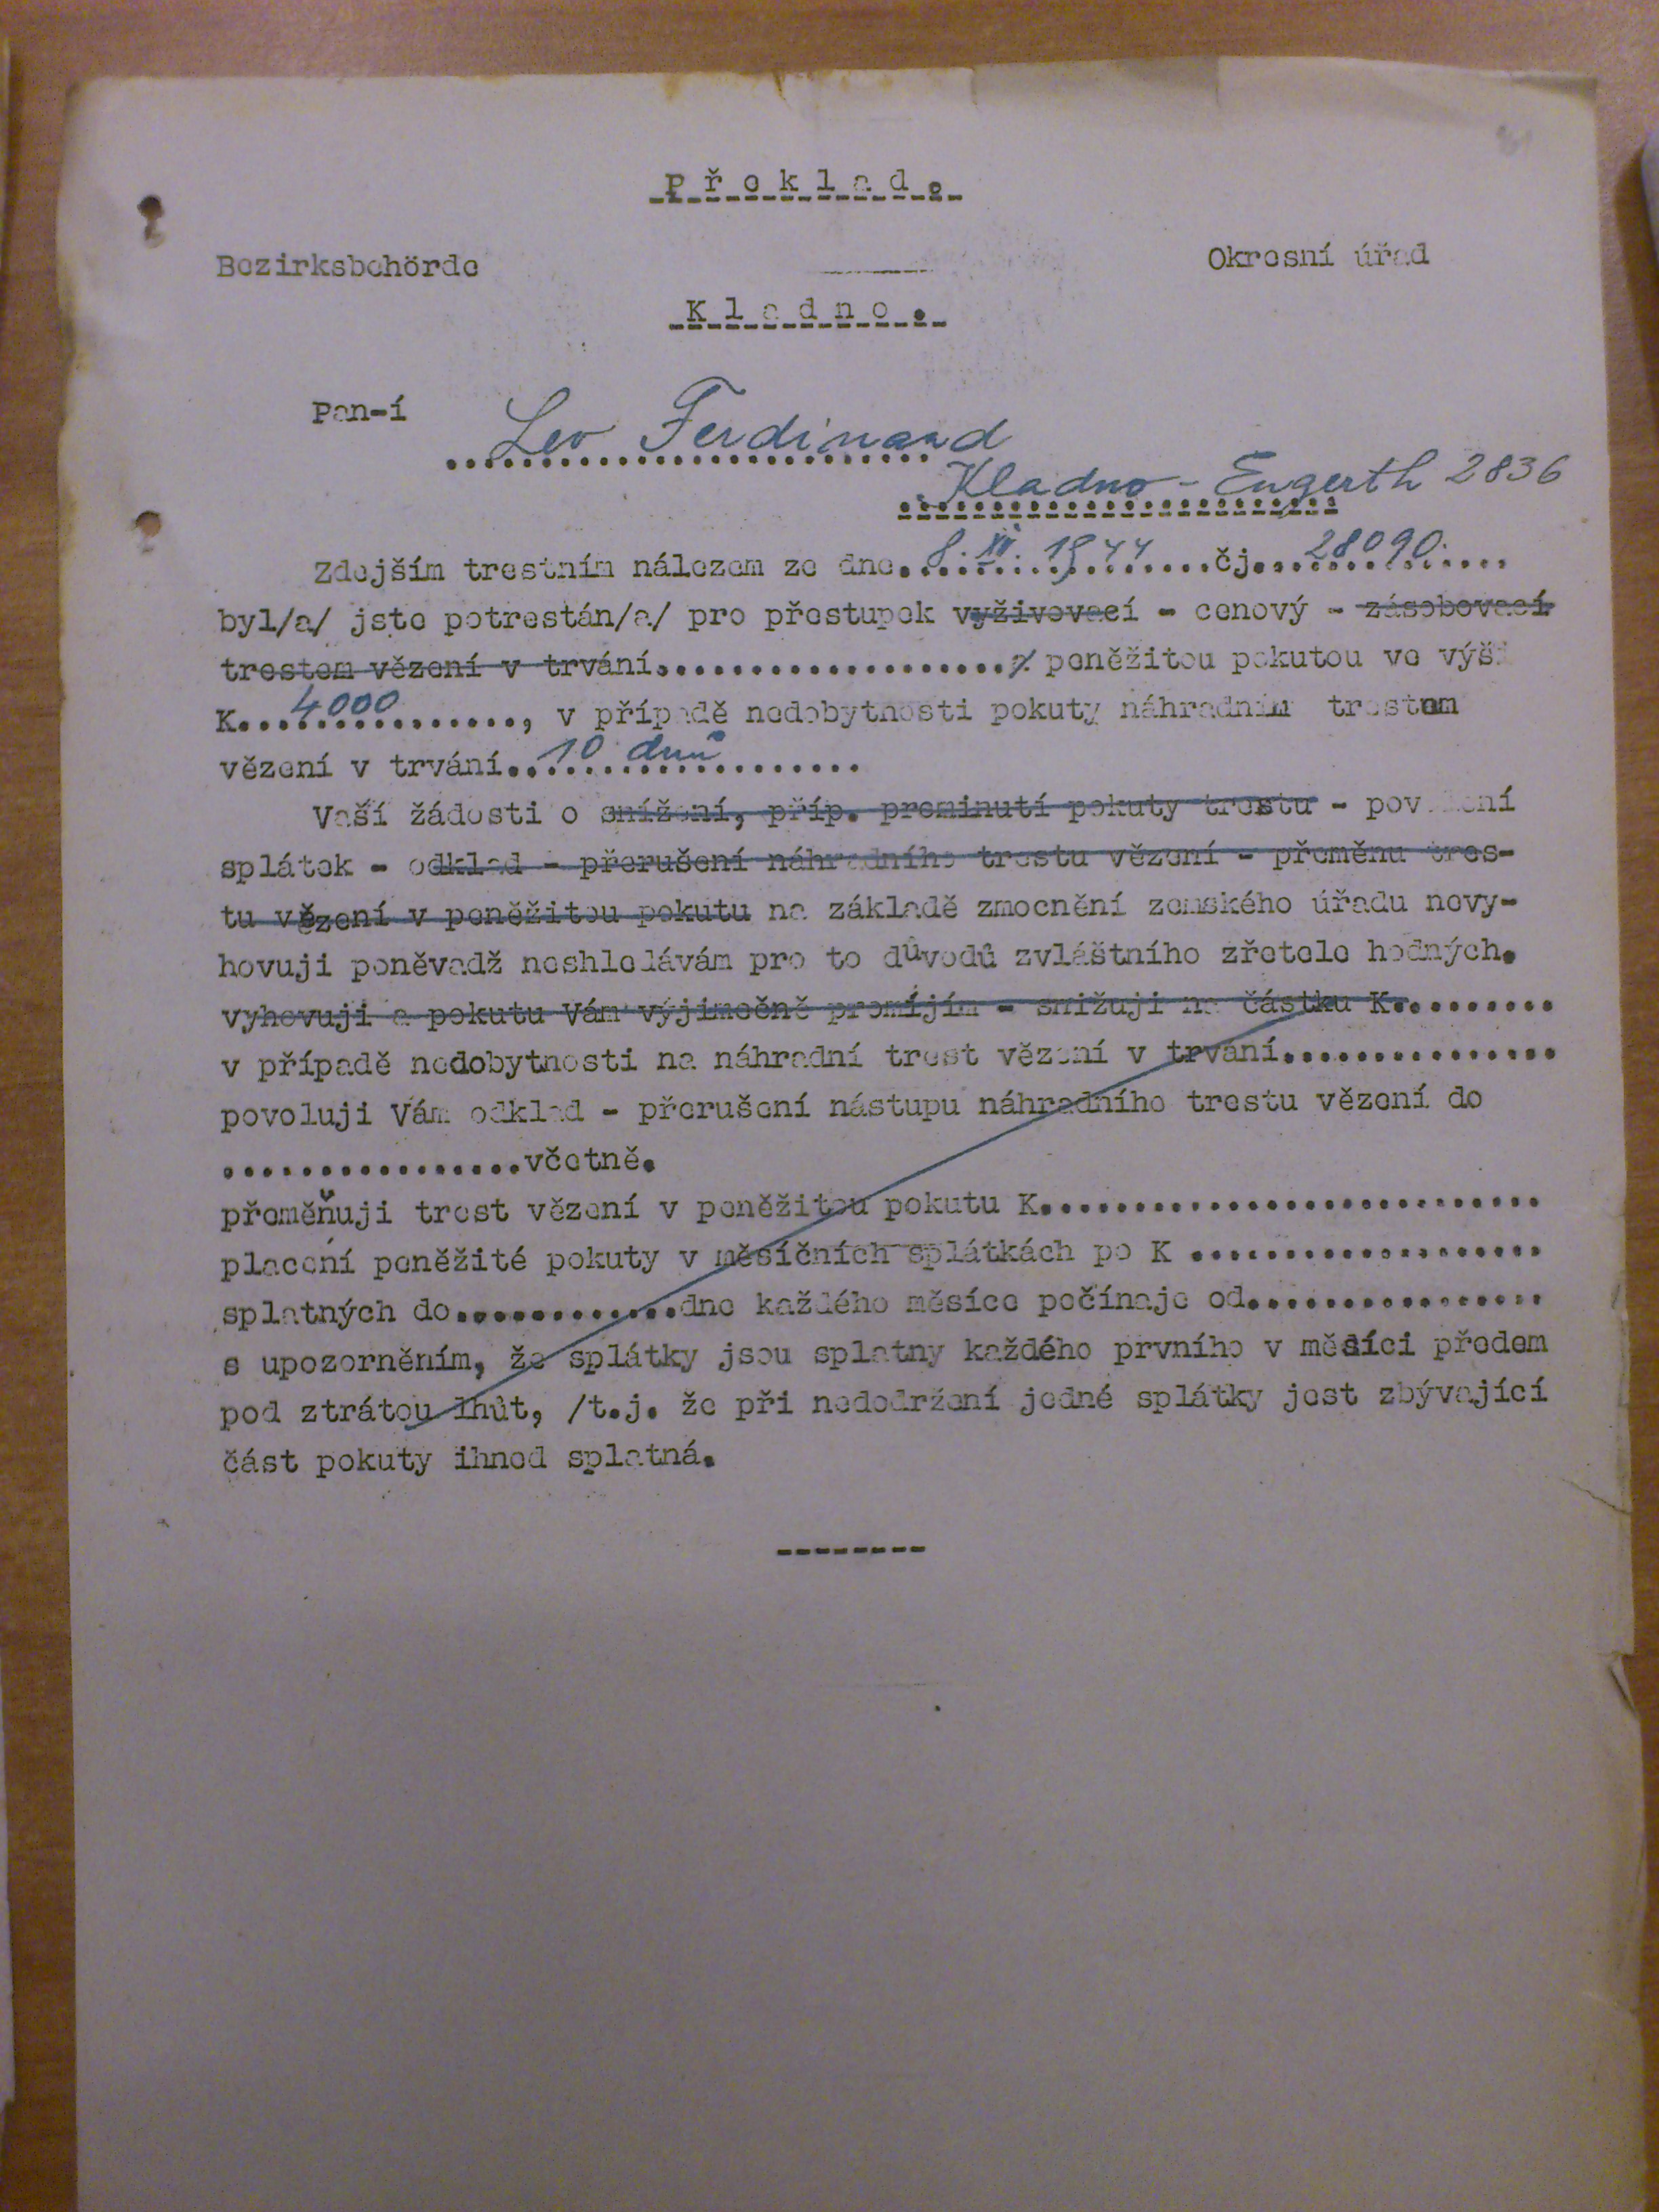 Překlad.
Bezirksbehörde
Okresní úřad
Kladno.
Pan-í
Leo Ferdinand
Kladno - Engerth 2836
Zdejším trestním nálezem ze dne.8. XII. 1944....čj...28090....
byl/a/ jste potrestán/a/ pro přestupek vyživovací - cenový - zásobovací
trestem vězení v trvání................... peněžitou pokutou ve výši
K...4000..............., v případě nedobytnosti pokuty náhradním trestem
vězení v trvání..10 dnů.................
Vaší žádosti o snížení, příp. prominutí pokuty trestu - povolení
splátek - odklad - přerušení náhradního trestu vězení - přeměnu tres-
tu vězení v peněžitou pokutu na základě zmocnění zemského úřadu nevy-
hovuji poněvadž neshledávám pro to důvodů zvláštního zřetele hodných.
vyhovuji a pokutu Vám výjimečně promíjím - snižuji na částku K.........
v případě nedobytnosti na náhradní trest vězení v trvání...............
povoluji Vám odklad - přerušení nástupu náhradního trestu vězení do
................včetně.
přeměňuji trest vězení v peněžitou pokutu K...........................
placení peněžité pokuty v měsíčních splátkách po K ...................
splatných do............dne každého měsíce počínaje od................
s upozorněním, že splátky jsou splatny každého prvního v měsíci předem
pod ztrátou lhůt, /t.j. že při nedodržení jedné splátky jest zbývající
část pokuty ihned splatná.
--------